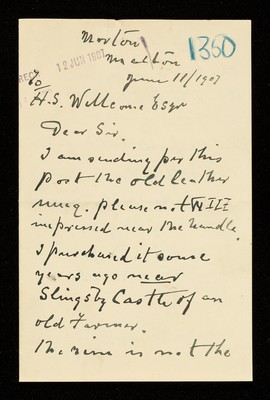 Norton
Malton
1360
RECD 12 JUN 1907
June 11/1907
To
H. S. Wellcome Esqr
Dear Sir.
I am sending per this
post the old leather
mug. please not W III
impressed near the handle.
I purchased it some
years ago near
Slingsby Castle of an
old Farmer.
the rim is not the